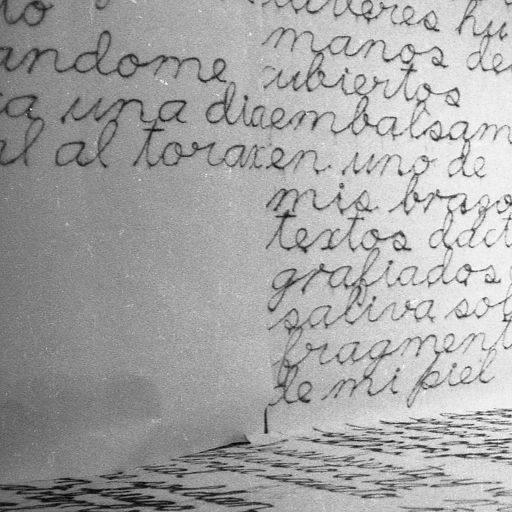 andome
ia una dia
al al torax
veres hu
manos de
cubiertos
embalsam
en uno de
mis brazo
textos dact
grafiados
saliva sob
fragment
de mi piel